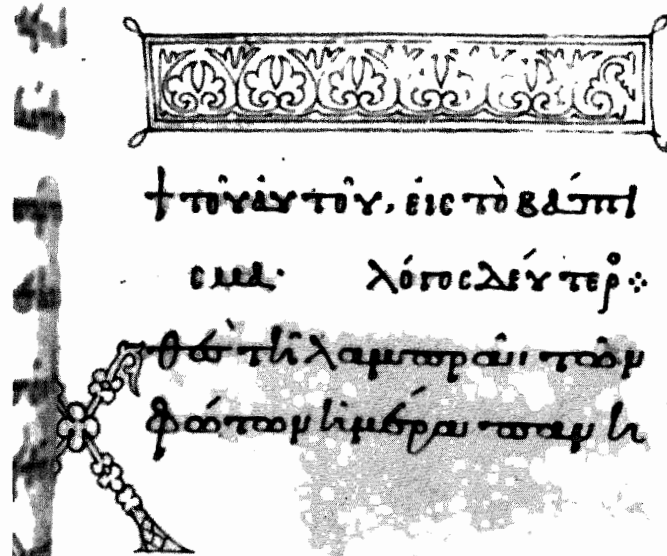 † τοῦ αὐτοῦ, εἰς τὸ βάπτι
σμα· λόγος δεύτερο⁘
Χθὲς τῆι λαμπρᾶι τῶν
φώτων ἡμέραι πανη